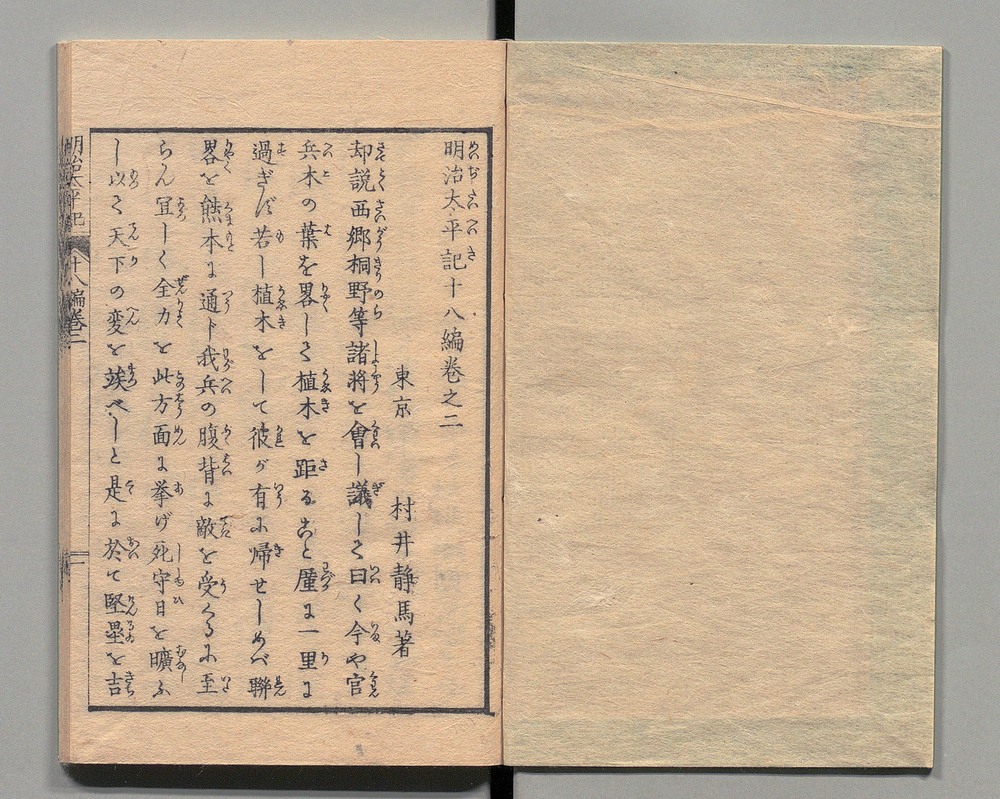 明治太平記十八編巻之二
東京 村井静馬著
却説西郷桐野等諸将を會し議して曰く今や官
兵木の葉を畧して植木を距ること厪に一里に
過ぎず若し植木をして彼が有に帰せしめバ聯
畧を熊本に通ト我兵の腹背に敵を受くるに至
らん宜しく全力を此方面に挙げ死守日を曠ふ
し以て天下の変を竢べしと是に於て堅塁を吉
明治太平記 十八編巻二